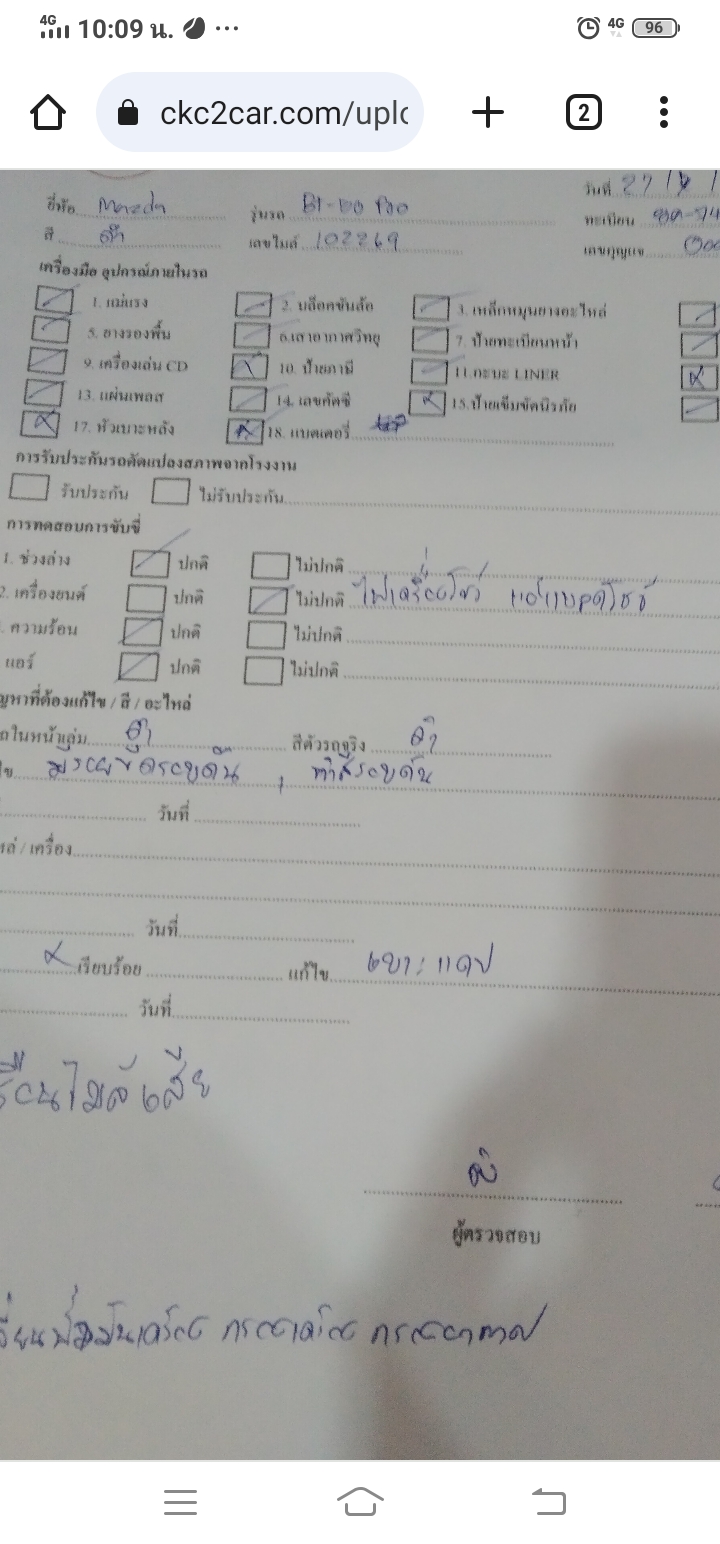 4G 10:09 น. ... 4G 96
ckc2car.com/uplo 2
วันที่ 27
ยี่ห้อ Mazda รุ่นรถ BT-50 Pro ทะเบียน
สี ดำ เลขไมล์ 102269 เลขกุญแจ
เครื่องมือ อุปกรณ์ภายในรถ
1. แม่แรง 2. บล็อคขันล้อ 3. เหล็กหมุนยางอะไหล่
5. ยางรองพื้น 6.เสาอากาศวิทยุ 7. ป้ายทะเบียนหน้า
9. เครื่องเล่น CD 10. ป้ายภาษี 11.กะบะ LINER
13. แผ่นเพลส 14. เลขคัซซี 15.ป้ายเข็มขัดนิรภัย
17. หัวเบาะหลัง 18. แบตเตอรี่
การรับประกันรถดัดแปลงสภาพจากโรงงาน
รับประกัน ไม่รับประกัน
การทดสอบการขับขี่
1. ช่วงล่าง ปกติ ไม่ปกติ
2. เครื่องยนต์ ปกติ ไม่ปกติ ไฟเครื่องโชว์
. ความร้อน ปกติ ไม่ปกติ
แอร์ ปกติ ไม่ปกติ
ญหาที่ต้องแก้ไข / สี / อะไหล่
ถในหน้าเล่ม ดำ สีตัวรถจริง ดำ
ข มีรอยขีดรอบคัน , ทำสีรอบคัน
วันที่
หล่ / เครื่อง
วันที่
เรียบร้อย แก้ไข เบาะ แคป
วันที่
เรือนไมล์เสีย
ผู้ตรวจสอบ
น้ำมันเครื่อง กรองเครื่อง กรองอากาศ